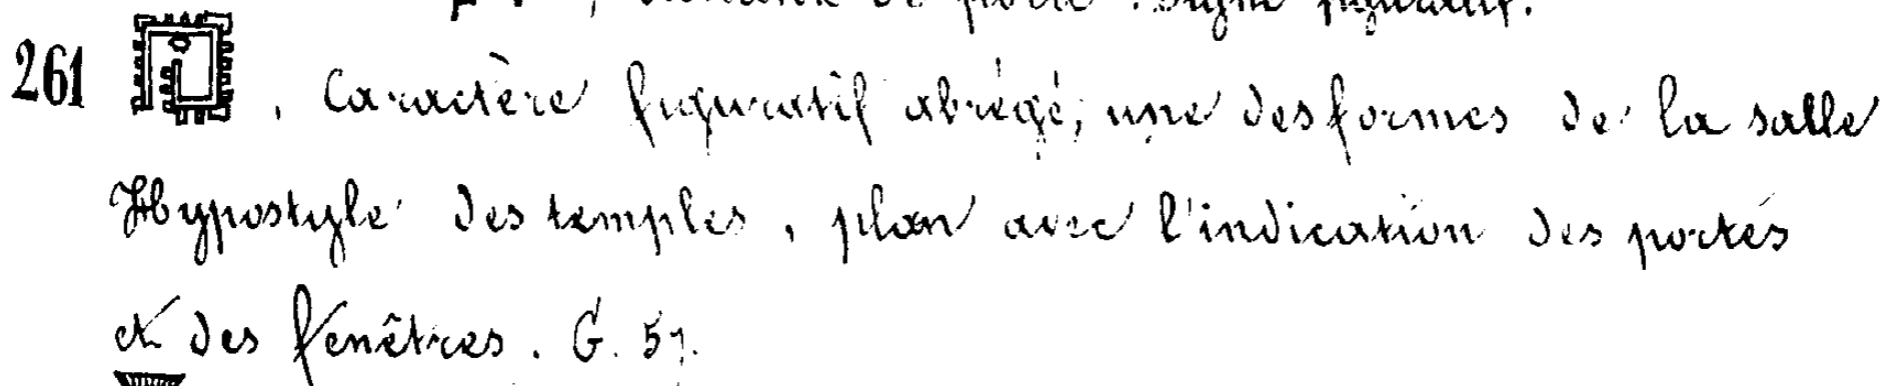 de porte. Signe figuratif.
261 , Caractère figuratif abrégé; une des formes de la salle
Hypostyle des temples, plan avec l'indication des portes
et des fenêtres. G. 57.